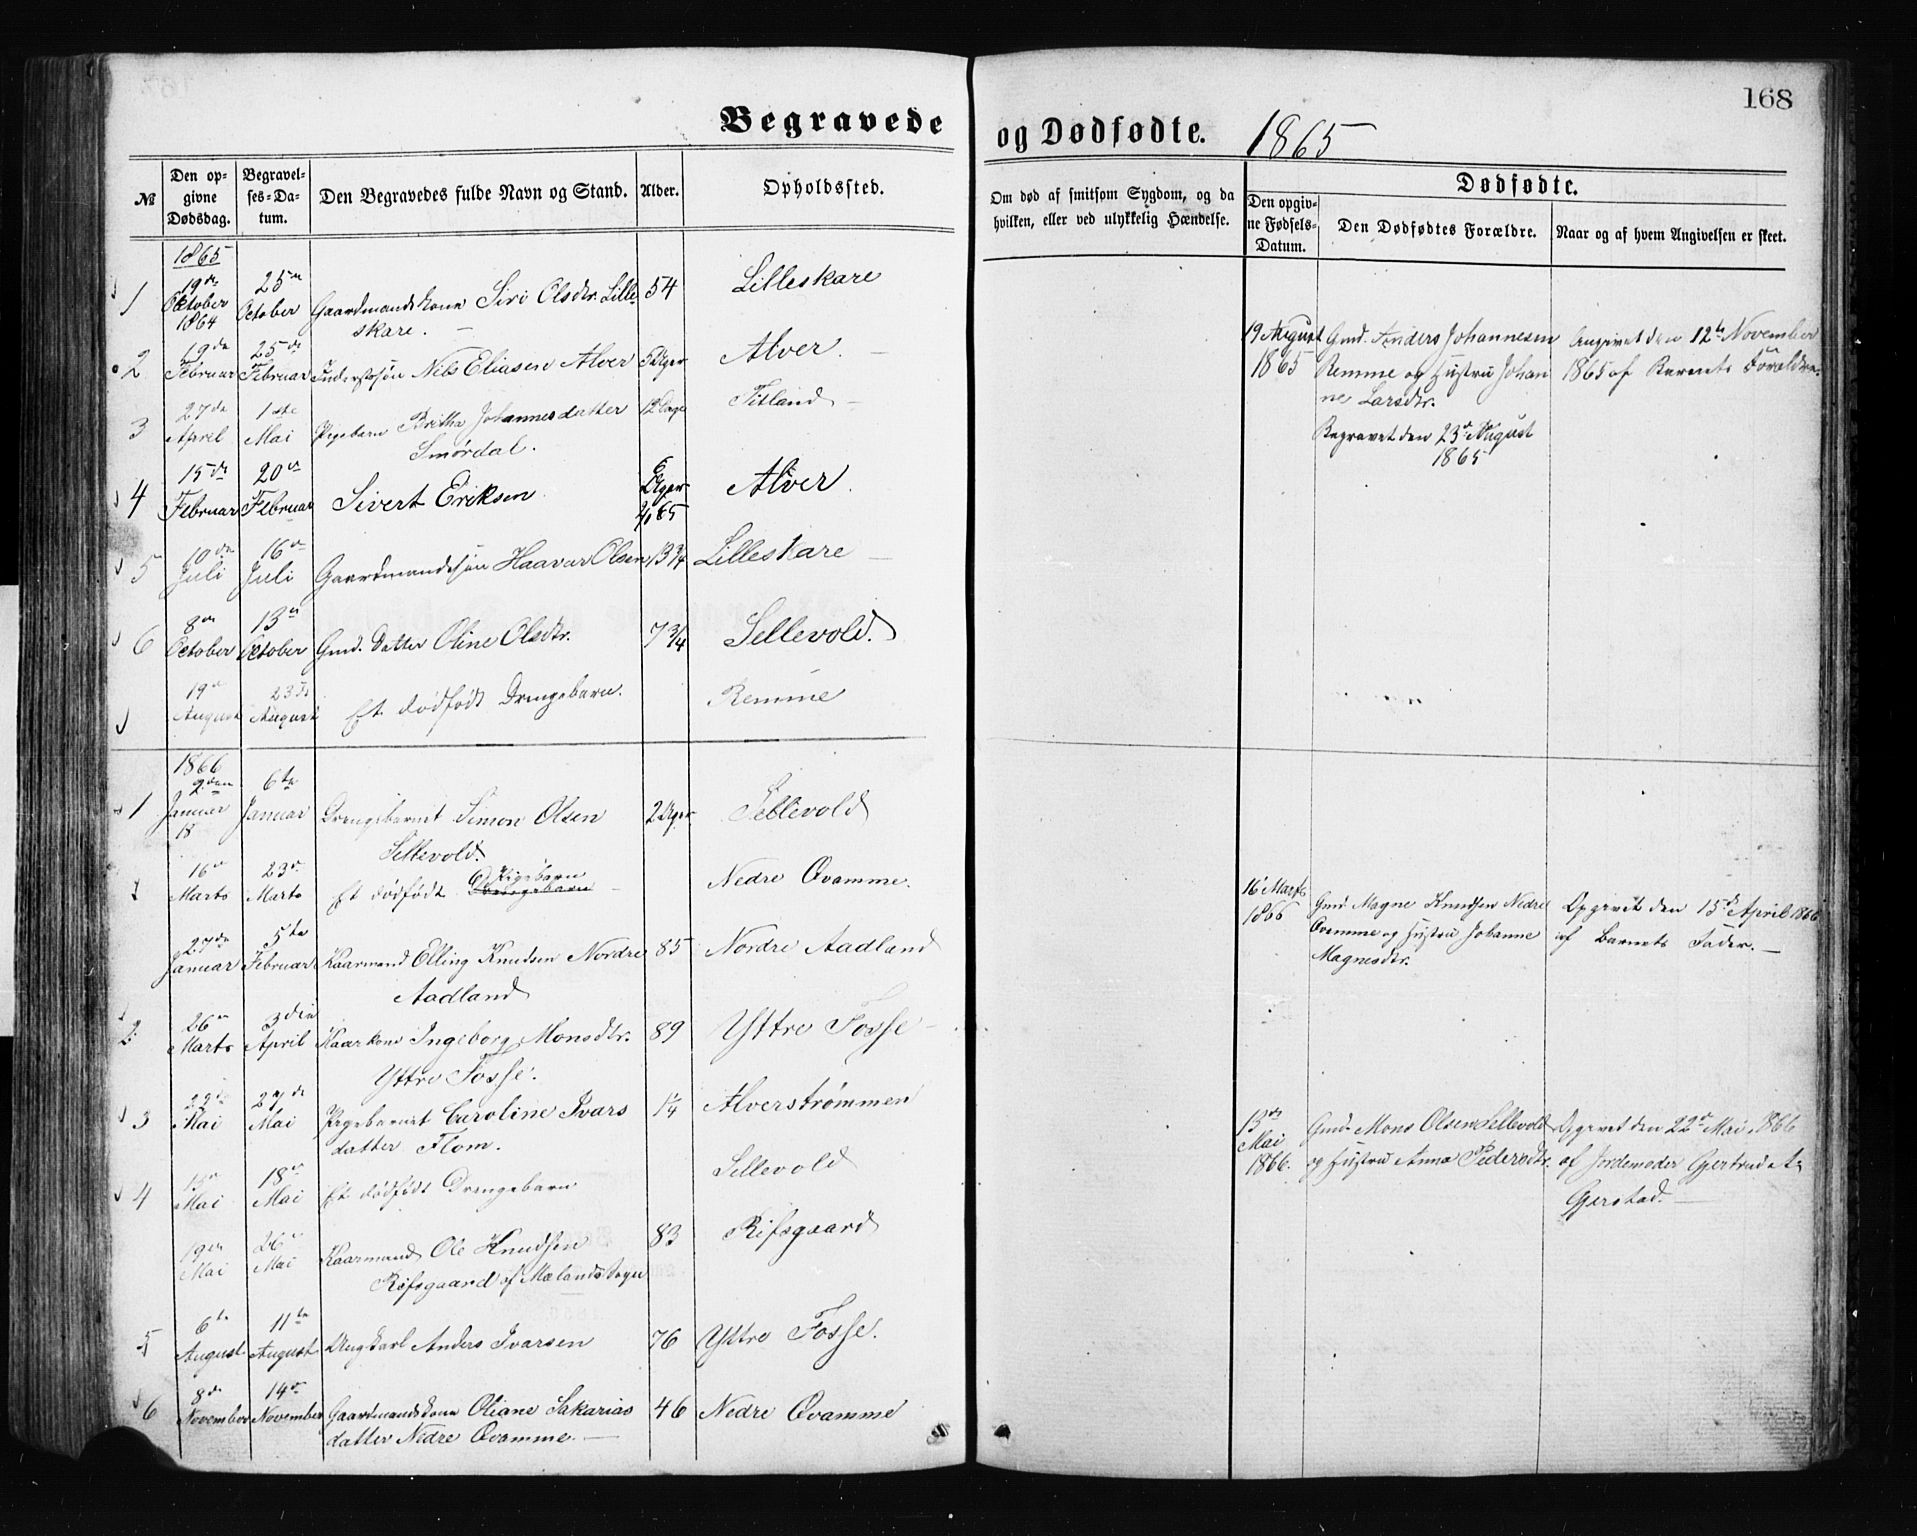 168
Begravede og Dødfødte. 1865
№
Den opgivne Dødsdag.
Begravelses-Datum.
Den Begravedes fulde Navn og Stand.
Alder.
Opholdssted.
Om død af smitsom Sygdom, og da hvilken, eller ved ulykkelig Hændelse.
Dødfødte.
Den opgivne Fødsels-Datum.
Den Dødfødtes Forældre.
Naar og af hvem Angivelsen er skeet.
1865
1 19de October 1864 25de October Gaardmandskone Siri Olsdtr. Lilleskare. 54 Lilleskare
2 19de Februar 25de Februar Nils Eliasen Alver 5 Uger Alver.
3 27de April 1ste Mai Pigebarn Britha Johannesdatter Smørdal. 12 Dage Titland
4 15de Februar 20de Februar Sivert Eriksen 6 Uger Alver.
5 10de Juli 16de Juli Gaardmandssøn Haavar Olsen 13 3/4 Lilleskare
6 8de October 13de October Gmd. Datter Oline Olsdtr. 7 3/4 Sellevold.
19de August 23de August Et dødfødt Drengebarn. Remme
19 August 1865 Gmd. Anders Johannesen Remme og Hustru Johanne Larsdtr.
Begravet den 23de August 1865
Angivet den 12te November 1865 af Barnets Forældre
1866
1 2den Januar 18 6te Januar Drengebarnet Simon Olsen Sellevold. 2 Uger Sellevold
16de Marts 23de Marts Et dødfødt Pigebarn Drengebarn Nedre Qvamme.
16 Marts 1866 Gmd. Magne Knudsen Nedre Qvamme og Hustru Johanne Magnesdtr.
Opgivet den 15de April 1866 af Barnets Fader.
27de Januar 5te Februar Kaarmand Elling Knudsen Nordre Aadland 85 Nordre Aadland
2 26de Marts 3die April Kaarkone Ingeborg Monsdtr. Yttre Fosse. 89 Yttre Fosse
3 22de Mai 27de Mai Pigebarnet Caroline Ivarsdatter Flom. 1/4 Alverstrømmen
4 13de Mai 18de Mai Et dødfødt Drengebarn Sellevold
13de Mai 1866. Gmd. Mons Olsen Sellevold og Hustru Anna Pedersdtr.
Opgivet den 22de Mai 1866 af Jordemoder Gjertrud Gjerstad.
19de Mai 26de Mai Kaarmand Ole Knudsen Rifsgaard af Mælands Sogn 83 Rifsgaard
5 6te August 11te August Ungkarl Anders Ivarsen 76 Yttre Fosse.
6 8de November 14de November Gaardmandskone Oliane Sakariasdatter Nedre Qvamme. 46 Nedre Qvamme